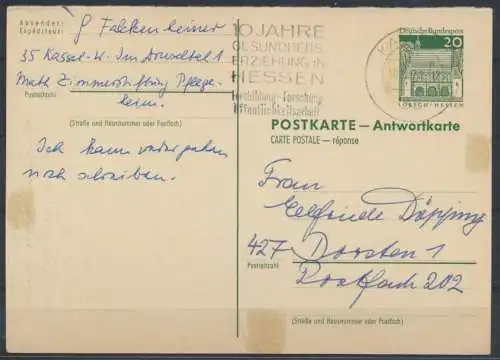 Absender:
Expéditeur:
G Falckenheiner
35 Kassel-W. Im Druseltal 1
Math Zimmerstiftung Pflege-
heim.
Postleitzahl
(Straße und Hausnummer oder Postfach)
Ich kann weder gehen
noch schreiben.
10 JAHRE
GESUNDHEITS
ERZIEHUNG IN
HESSEN
Fortbildung-Forschung
Öffentlichkeitsarbeit
Deutsche Bundespost
20
LORSCH/HESSEN
POSTKARTE — Antwortkarte
CARTE POSTALE — réponse
Frau
Elfriede Döpping
427 Dorsten 1
Postleitzahl
Postfach 202
(Straße und Hausnummer oder Postfach)